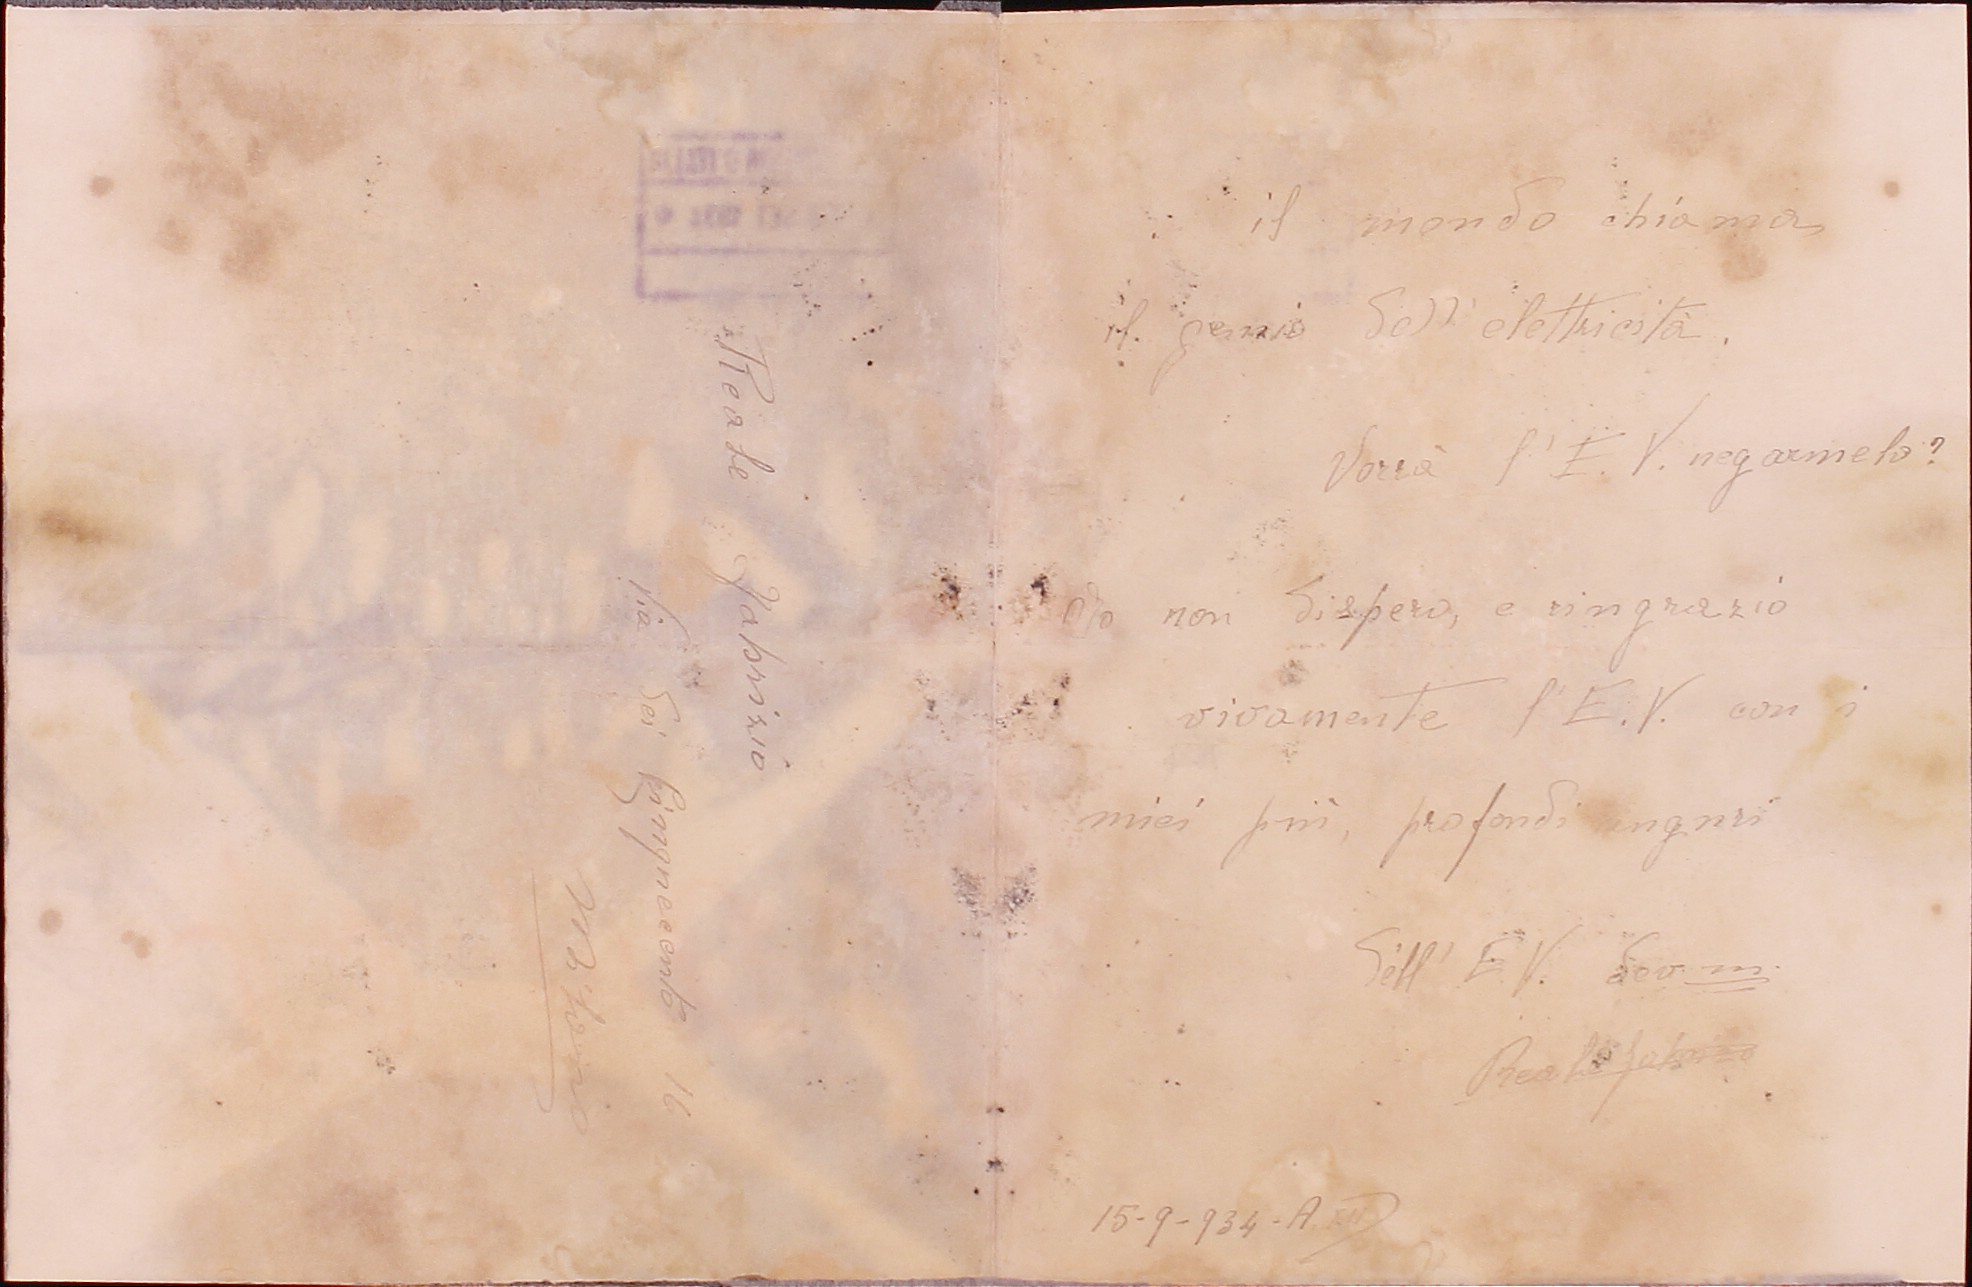 il mondo chiama
il genio dell'elettricità.
Vorrà l'E.V. negarmelo?
Io non dispero, e ringrazio
vivamente l'E.V. con i
miei più, profondi auguri
Dell'E.V. dev.m.
Reale Fabrizio
15-9-934-A. XII
Reale Fabrizio
Via del Cinquecento 16